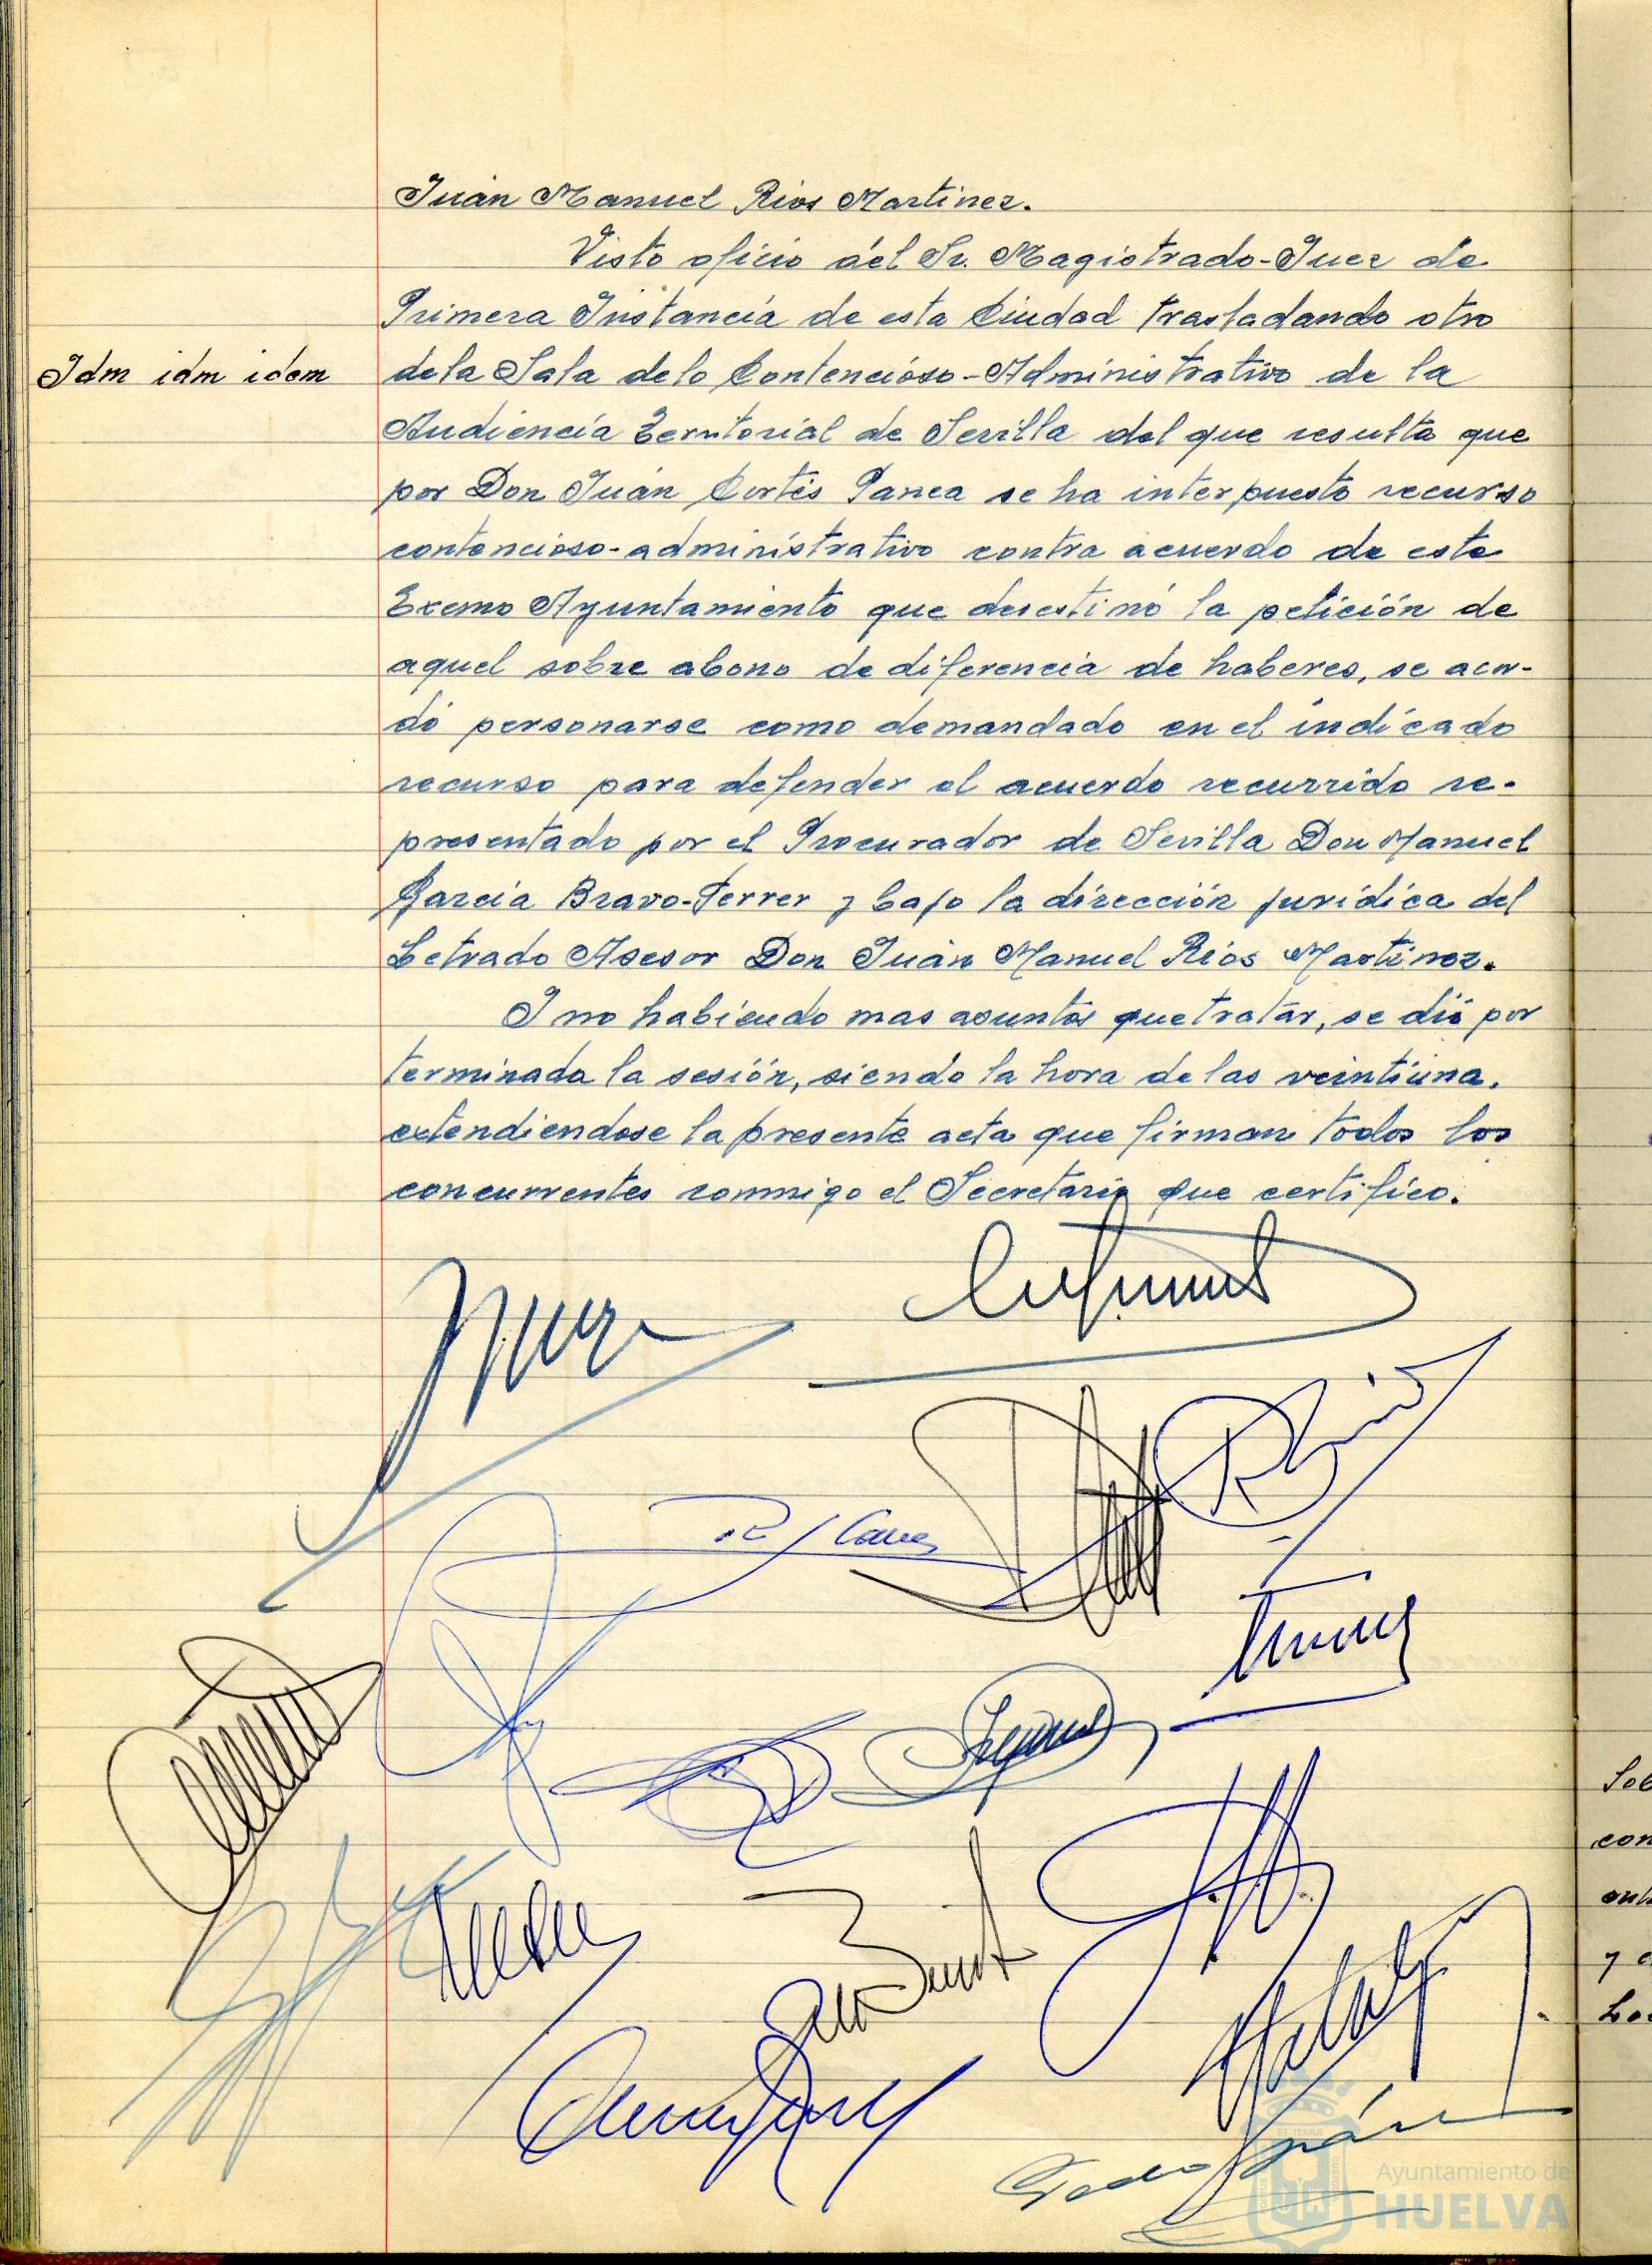 Juan Manuel Rios Martinez.
Visto oficio del Sr. Magistrado-Juez de
Primera Instancia de esta Ciudad trasladando otro
Idm idm idem
de la Sala de lo Contencioso-Administrativo de la
Audiencia Territorial de Sevilla del que resulta que
por Don Juan Cortés Panea se ha interpuesto recurso
contencioso-administrativo contra acuerdo de este
Excmo Ayuntamiento que desestimó la petición de
aquel sobre abono de diferencia de haberes, se acor-
dó personarse como demandado en el indicado
recurso para defender el acuerdo recurrido re-
presentado por el Procurador de Sevilla Don Manuel
García Bravo-Ferrer y bajo la dirección jurídica del
Letrado Asesor Don Juan Manuel Ríos Martinez.
Y no habiendo mas asuntos que tratar, se dió por
terminada la sesión, siendo la hora de las veintiuna.
extendiendose la presente acta que firman todos los
concurrentes conmigo el Secretario que certifico.
Ayuntamiento de
HUELVA